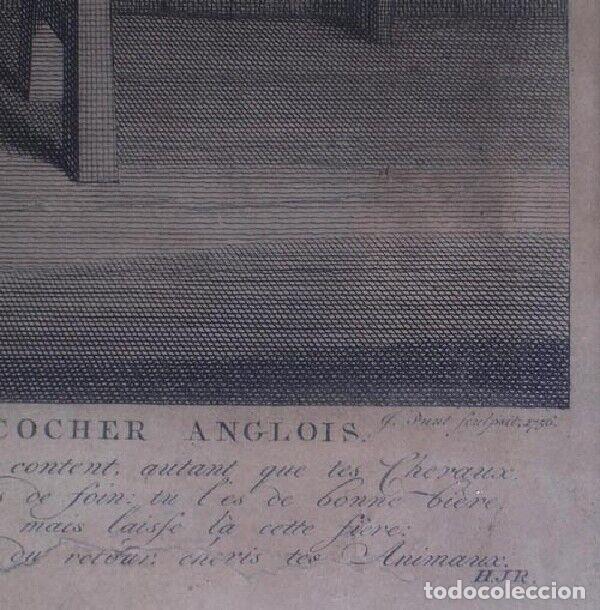 COCHER ANGLOIS. J. Punt sculpsit, 1756.
content, autant que tes Chevaux.
s de foin; tu l'es de bonne bière,
mais laisse là cette fière;
du retour, cheris tes Animaux.
H.J.R.
todocoleccion
todocoleccion.net